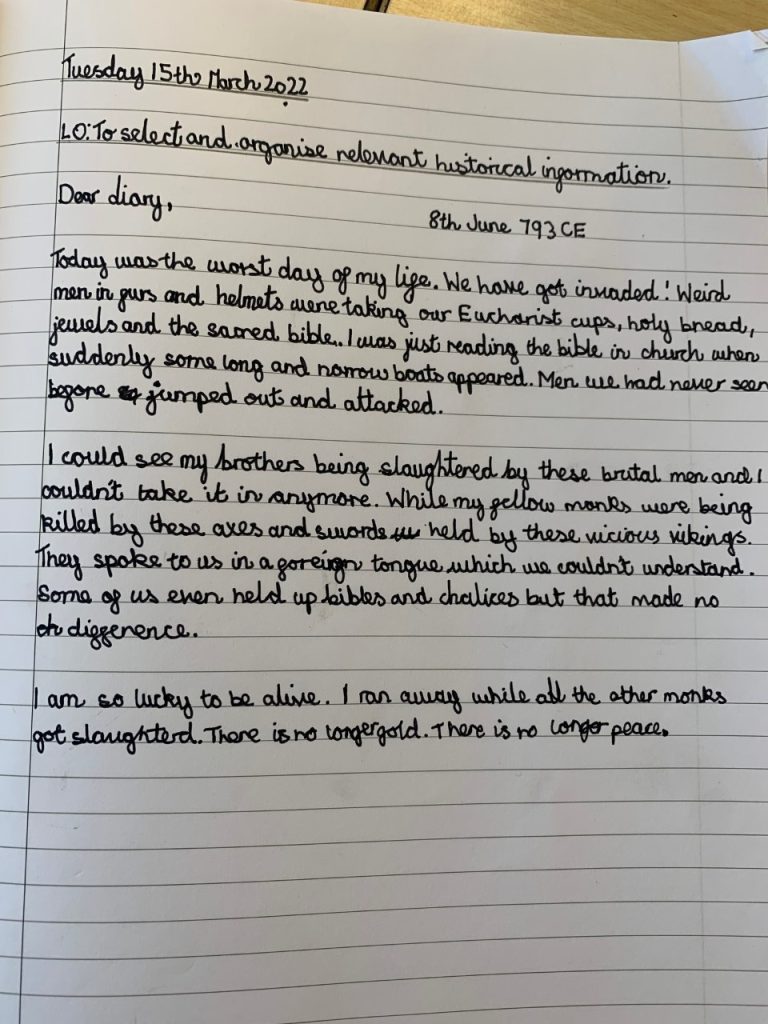 Tuesday 15th March 2022
LO: To select and organise relevant historical information.
Dear diary,
8th June 793 CE
Today was the worst day of my life. We have got invaded! Weird
men in furs and helmets were taking our Eucharist cups, holy bread,
jewels and the sacred bible.. I was just reading the bible in church when
suddenly some long and narrow boats appeared. Men we had never seen
before jumped out and attacked.
I could see my brothers being slaughtered by these brutal men and I
couldn't take it in anymore. While my fellow monks were being
killed by these axes and swords held by these vicious vikings.
They spoke to us in a foreign tongue which we couldn't understand.
Some of us even held up bibles and chalices but that made no
difference.
I am so lucky to be alive. I ran away while all the other monks
got slaughterd. There is no longer gold. There is no longer peace.